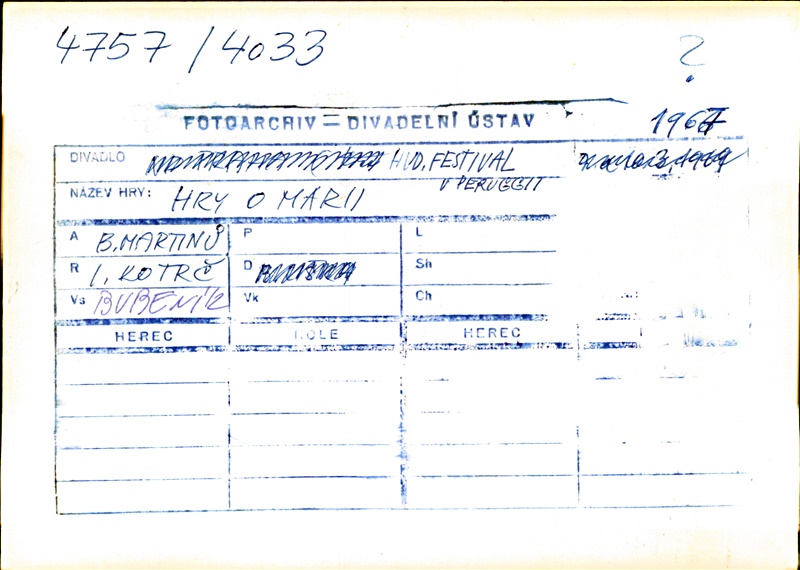 4757 / 4033 ?
FOTOARCHIV = DIVADELNÍ ÚSTAV 1967
DIVADLO HUD. FESTIVAL
V PERUGGII
NÁZEV HRY: HRY O MARII
A B. MARTINŮ P L
R I. KOTRČ D Sh
Vs BUBENÍK Vk Ch
HEREC ROLE HEREC